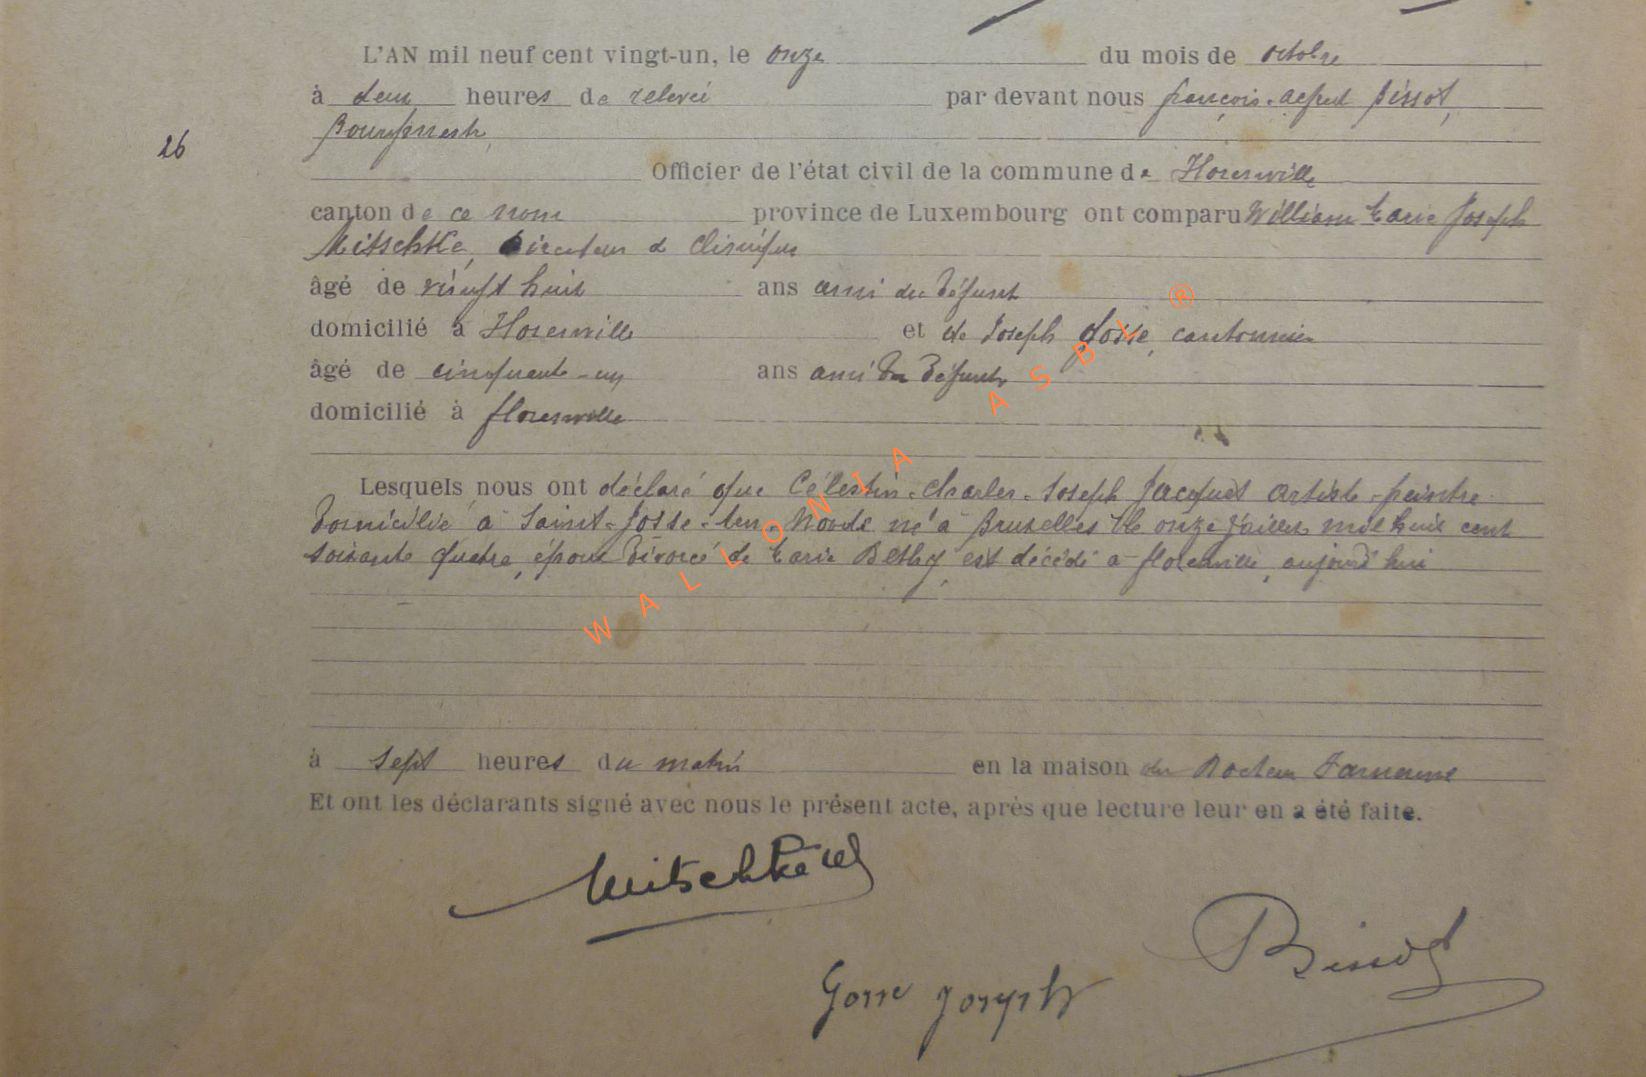 L'AN mil neuf cent vingt-un, le onze du mois de octobre
à deux heures de relevée par devant nous françois Bissot,
Bourgmestre,
26
Officier de l'état civil de la commune de Florenville
canton de ce nom province de Luxembourg ont comparu William Marie Joseph
Mitschké, Directeur de
âgé de vingt huit ans ami du défunt
domicilié à Florenville et de Joseph Gosse, cantonnier
âgé de cinquante-un ans ami du défunt
domicilié à florenville
Lesquels nous ont déclaré que Célestin-Charles-Joseph Jacquet artiste-peintre
domicilié à Saint-Josse-ten-Noode né à Bruxelles le onze juillet mil huit cent
soixante quatre, époux divorcé de Marie Bethy, est décédé à florenville, aujourd'hui
à sept heures du matin en la maison du Docteur
Et ont les déclarants signé avec nous le présent acte, après que lecture leur en a été faite.
Mitschké
Bissot
Gosse Joseph
WALLONIA ASBL ®